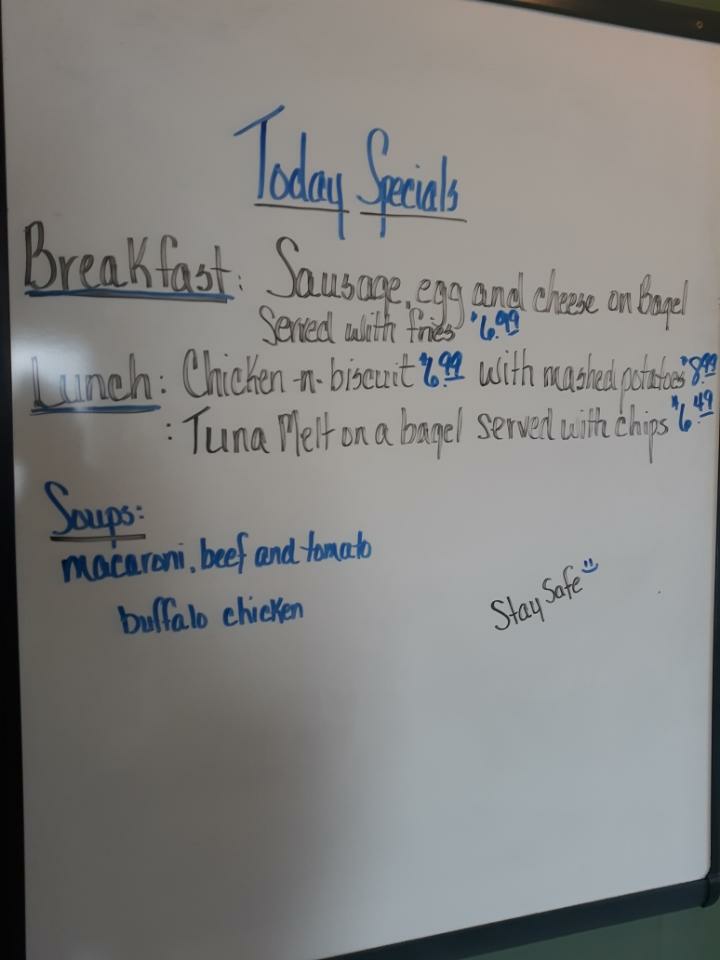 Today Specials
Breakfast: Sausage, egg and cheese on Bagel
Served with fries $6.99
Lunch: Chicken-n-biscuit $6.99 with mashed potatoes $8.99
: Tuna Melt on a bagel served with chips $6.49
Soups:
macaroni, beef and tomato
buffalo chicken
Stay Safe